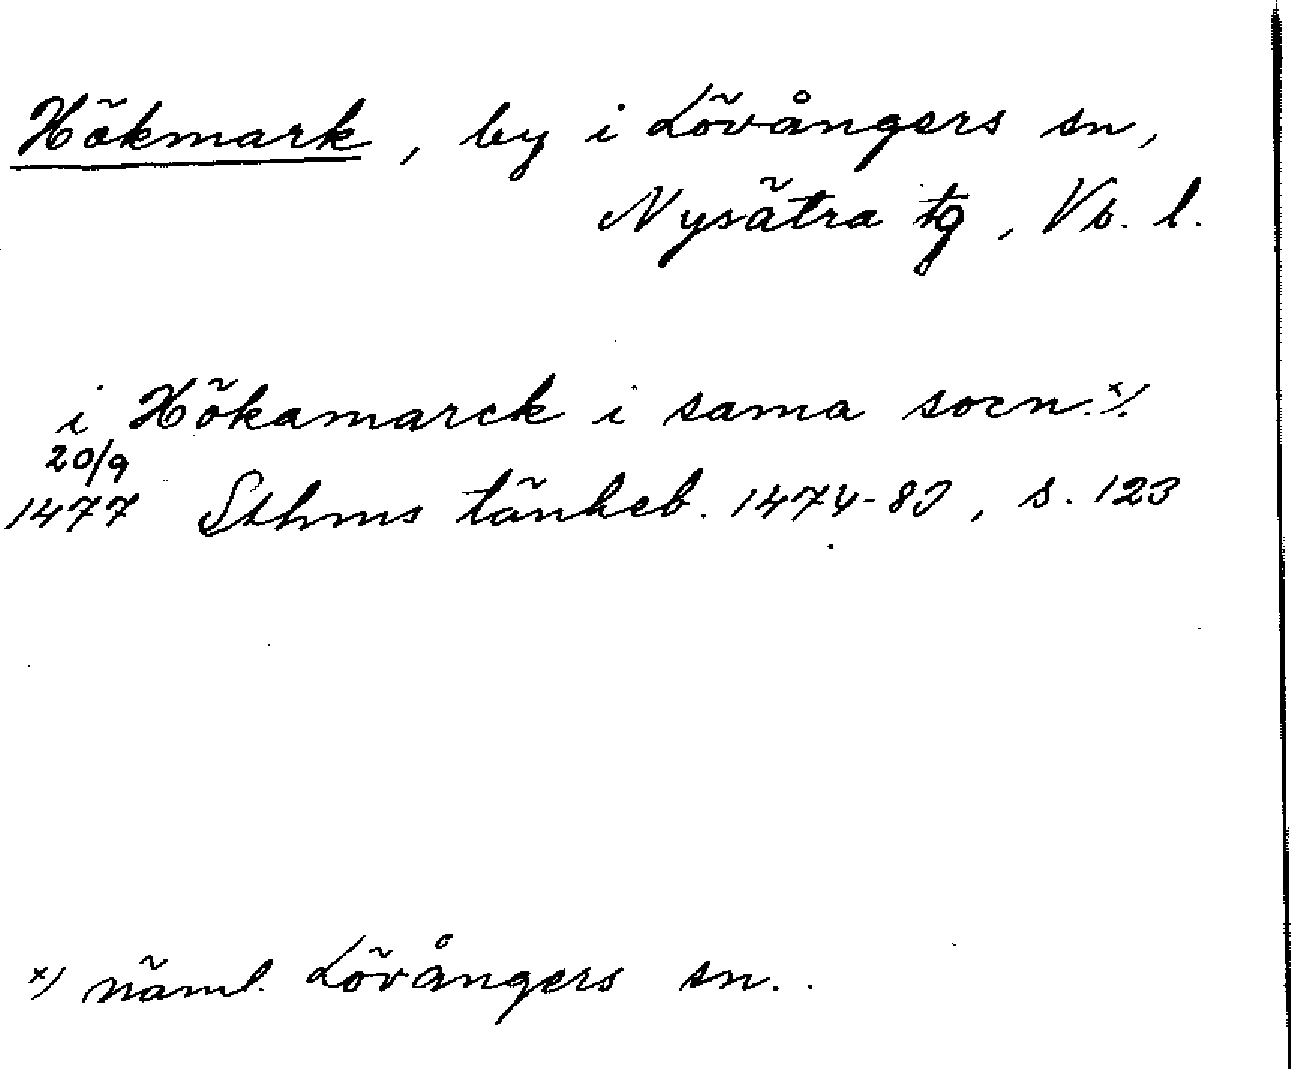 Hökmark, by i Lövångers sn,
Nysätra tg, Vb. l.
i Hökamarck i sama socn.x)
20/9
1477 Sthms tänkeb. 1474-83, s. 123
x) näml. Lövångers sn.